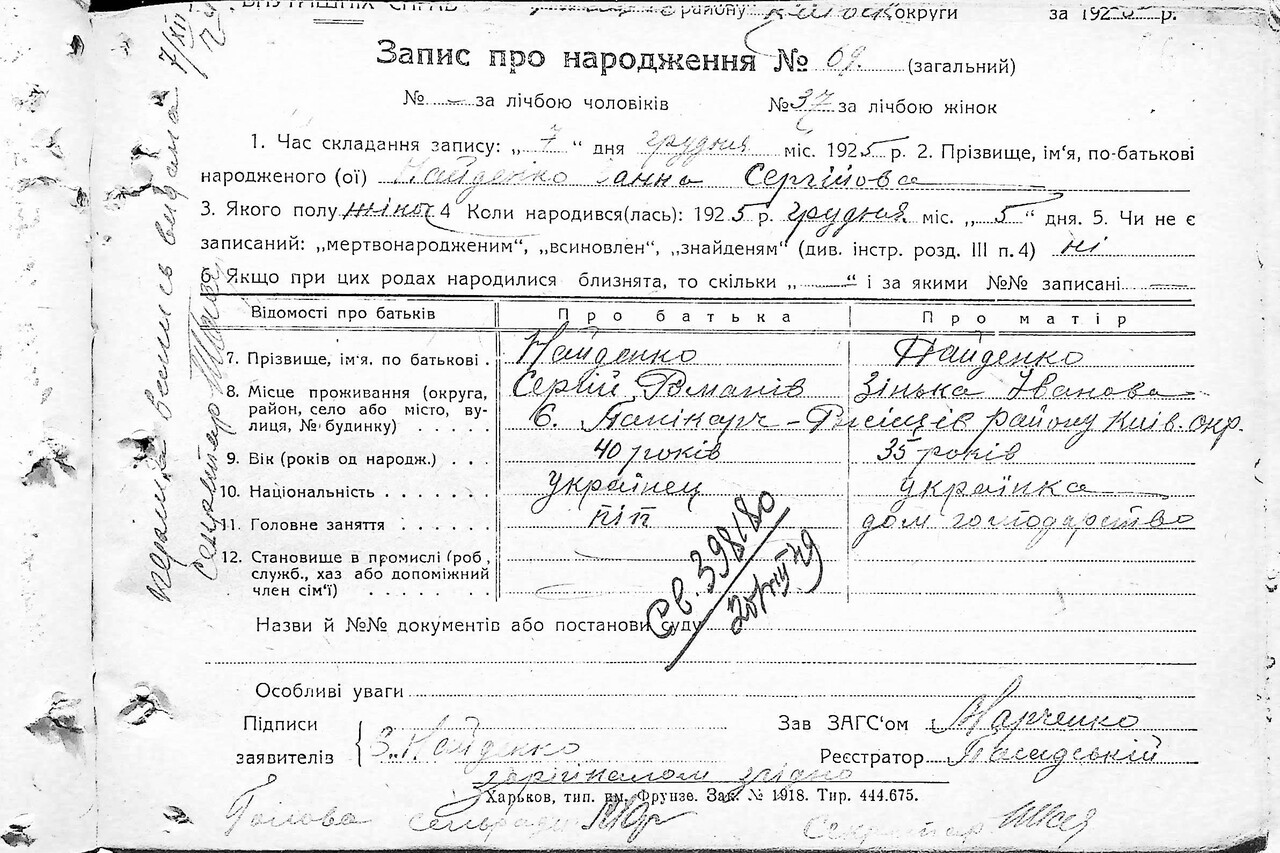 ВНУТРІШНІХ СПРАВ району округи за 1925 р.
Запис про народження № 69. (загальний)
№ – за лічбою чоловіків № 37 за лічбою жінок
1. Час складання запису: „ 7 “ дня грудня міс. 1925 р. 2. Прізвище, ім'я, по-батькові
народженого (ої) Найденко Ганна Сергійова
3. Якого полу жіноч 4 Коли народився(лась): 1925 р. грудня міс. „ 5 “ дня. 5. Чи не є
записаний: „мертвонародженим“, „всиновлен“, „знайденям“ (див. інстр. розд. III п. 4) ні
6. Якщо при цих родах народилися близнята, то скільки „ — “ і за якими №№ записані —
Відомості про батьків Про батька Про матір
7. Прізвище, ім'я, по батькові . Найденко Найденко
8. Місце проживання (округа, Сергій Романів Зінька Іванова
район, село або місто, ву-
лиця, № будинку) с. Ржищів району Київ. окр.
9. Вік (років од народж.) . . . 40 років 35 років
10. Національність . . . . . . . українец українка
11. Головне заняття . . . . . . піп дом господарство
12. Становище в промислі (роб,
служб., хаз або допоміжний
член сім'ї) . . . . . . . .
Св. 398180
20/XII 49
Назви й №№ документів або постанови суду
Особливі уваги
Підписи Зав ЗАГС'ом Марченко
заявителів З. Найденко Реєстратор
з оригіналом згідно
Харьков, тип. им. Фрунзе. Зак. № 1918. Тир. 444.675.
Голова сельради Секретар
видана 7/XII